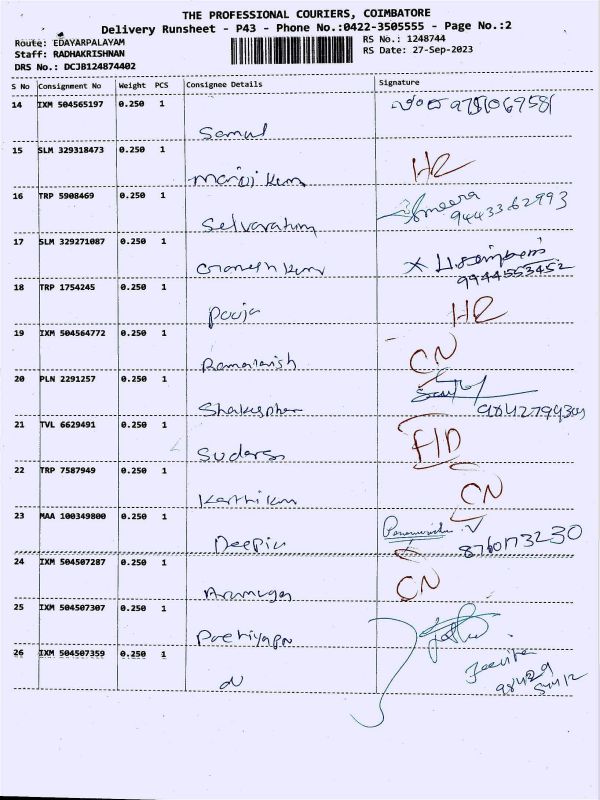 THE PROFESSIONAL COURIERS, COIMBATORE
Delivery Runsheet - P43 - Phone No.:0422-3505555 - Page No.:2
Route: EDAYARPALAYAM RS No.: 1248744
Staff: RADHAKRISHNAN RS Date: 27-Sep-2023
DRS No.: DCJB124874402
S No Consignment No Weight PCS Consignee Details Signature
14 IXM 504565197 0.250 1
Samul
15 SLM 329318473 0.250 1 HR
Manoj Kum
16 TRP 5908469 0.250 1 Ameera
9443362993
Selvaratum
17 SLM 329271087 0.250 1
Ganesh Kum 9944553452
18 TRP 1754245 0.250 1 HR
Pooja
19 IXM 504564772 0.250 1 CN
20 PLN 2291257 0.250 1
Shakespher
21 TVL 6629491 0.250 1 FID
Sudars
22 TRP 7587949 0.250 1 CN
Karthikun
23 MAA 100349800 0.250 1
Deepik 8760173230
24 IXM 504507287 0.250 1 CN
Arumuga
25 IXM 504507307 0.250 1
26 IXM 504507359 0.250 1